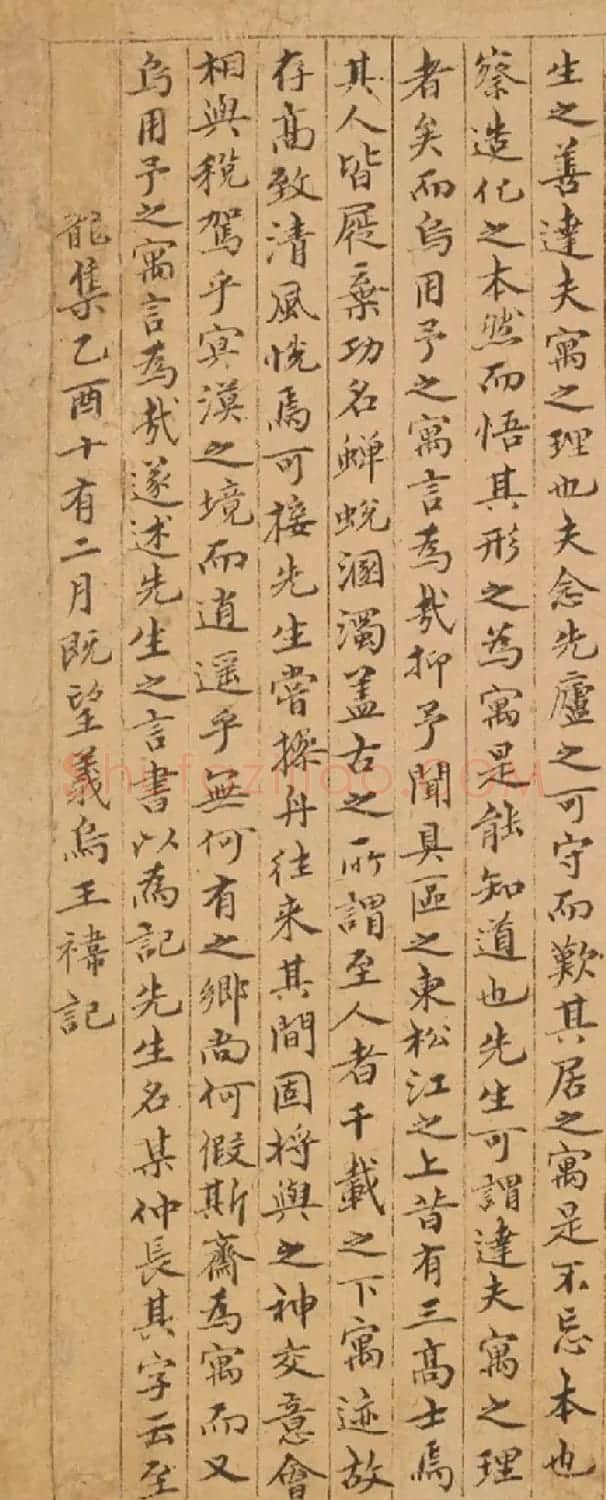 生之善達夫寓之理也夫念先廬之可守而歎其居之寓是不忘本也
察造化之本然而悟其形之為寓是能知道也先生可謂達夫寓之理
者矣而烏用予之寓言為哉抑予聞具區之東松江之上昔有三高士焉
其人皆屣棄功名蟬蛻溷濁蓋古之所謂至人者千載之下寓迹故
存高致清風恍焉可接先生嘗操舟往来其間固將與之神交意會
相與稅駕乎冥漠之境而逍遥乎無何有之鄉尚何假斯齋為寓而又
烏用予之寓言為哉遂述先生之言書以為記先生名某仲長其字云至
龍集乙酉十有二月既望義烏王禕記
shufazidian.com